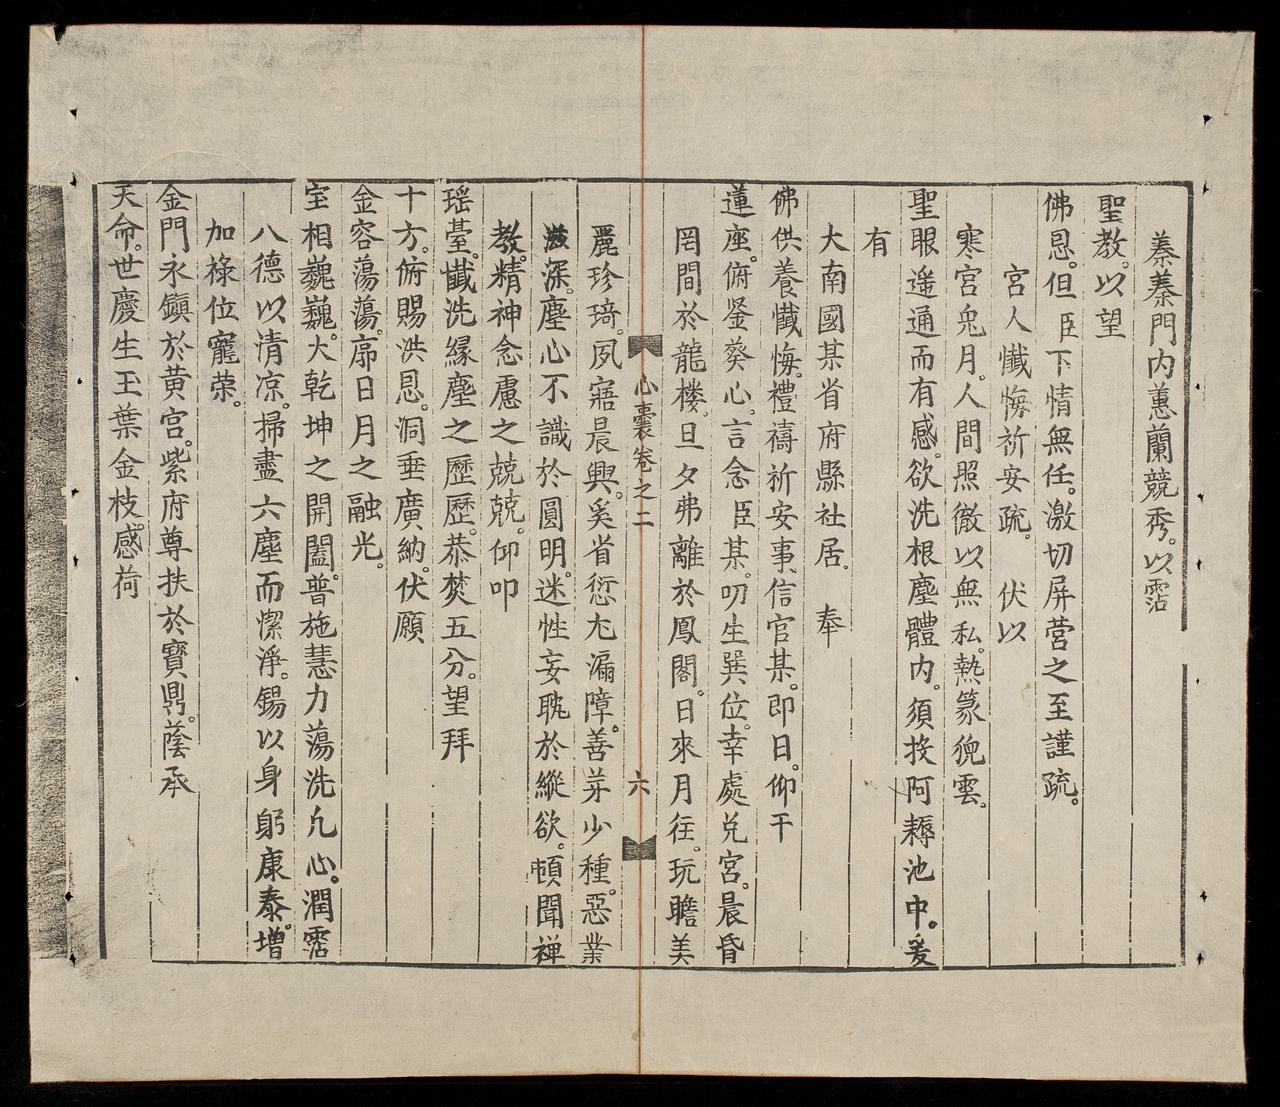 蓁蓁門内蕙蘭競秀。以霑
聖教。以望
佛恩。但臣下情無任。激切屏营之至謹疏。
宮人懺悔祈安疏。 伏以
寒宮兎月。人間照徹以無私。熱篆猊雲。
聖眼遥通而有感。欲洗根塵體内。須投阿耨池中。爰
有
大南國某省府縣社居。 奉
佛供養懺悔。禮禱祈安事、信官某。即日。仰干
蓮座。俯鉴葵心。言念臣某。叨生巽位。幸處兑宮。晨昏
罔間於龍樓。旦夕弗離於鳳閣。日來月往。玩瞻美
麗珍琦。夙寤晨興。奚省愆尤漏障。善芽少種。惡業
滋深。塵心不識於圓明。迷性妄耽於縱欲。頓聞禅
教。精神念慮之兢兢。仰叩
瑶臺。懺洗縁塵之歷歷。恭焚五分。望拜
十方。俯賜洪恩。洞垂廣納。伏願
金容蕩蕩。廓日月之融光。
宝相巍巍。大乾坤之開闔。普施慧力蕩洗凡心。潤霑
八德以清凉。掃盡六塵而潔淨。錫以身躬康泰。增
加祿位寵荣。
金門永鎮於黄宫。紫府尊扶於寶鼎。蔭承
天命。世慶生玉葉金枝。感荷
心囊卷之二
六